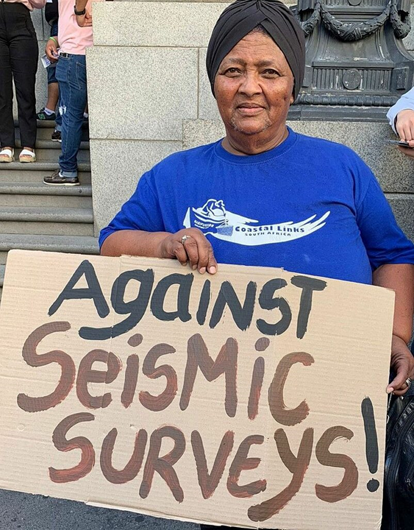 Coastal Links
SOUTH AFRICA
AgAiNST
SeiSMic
SURVeYS!